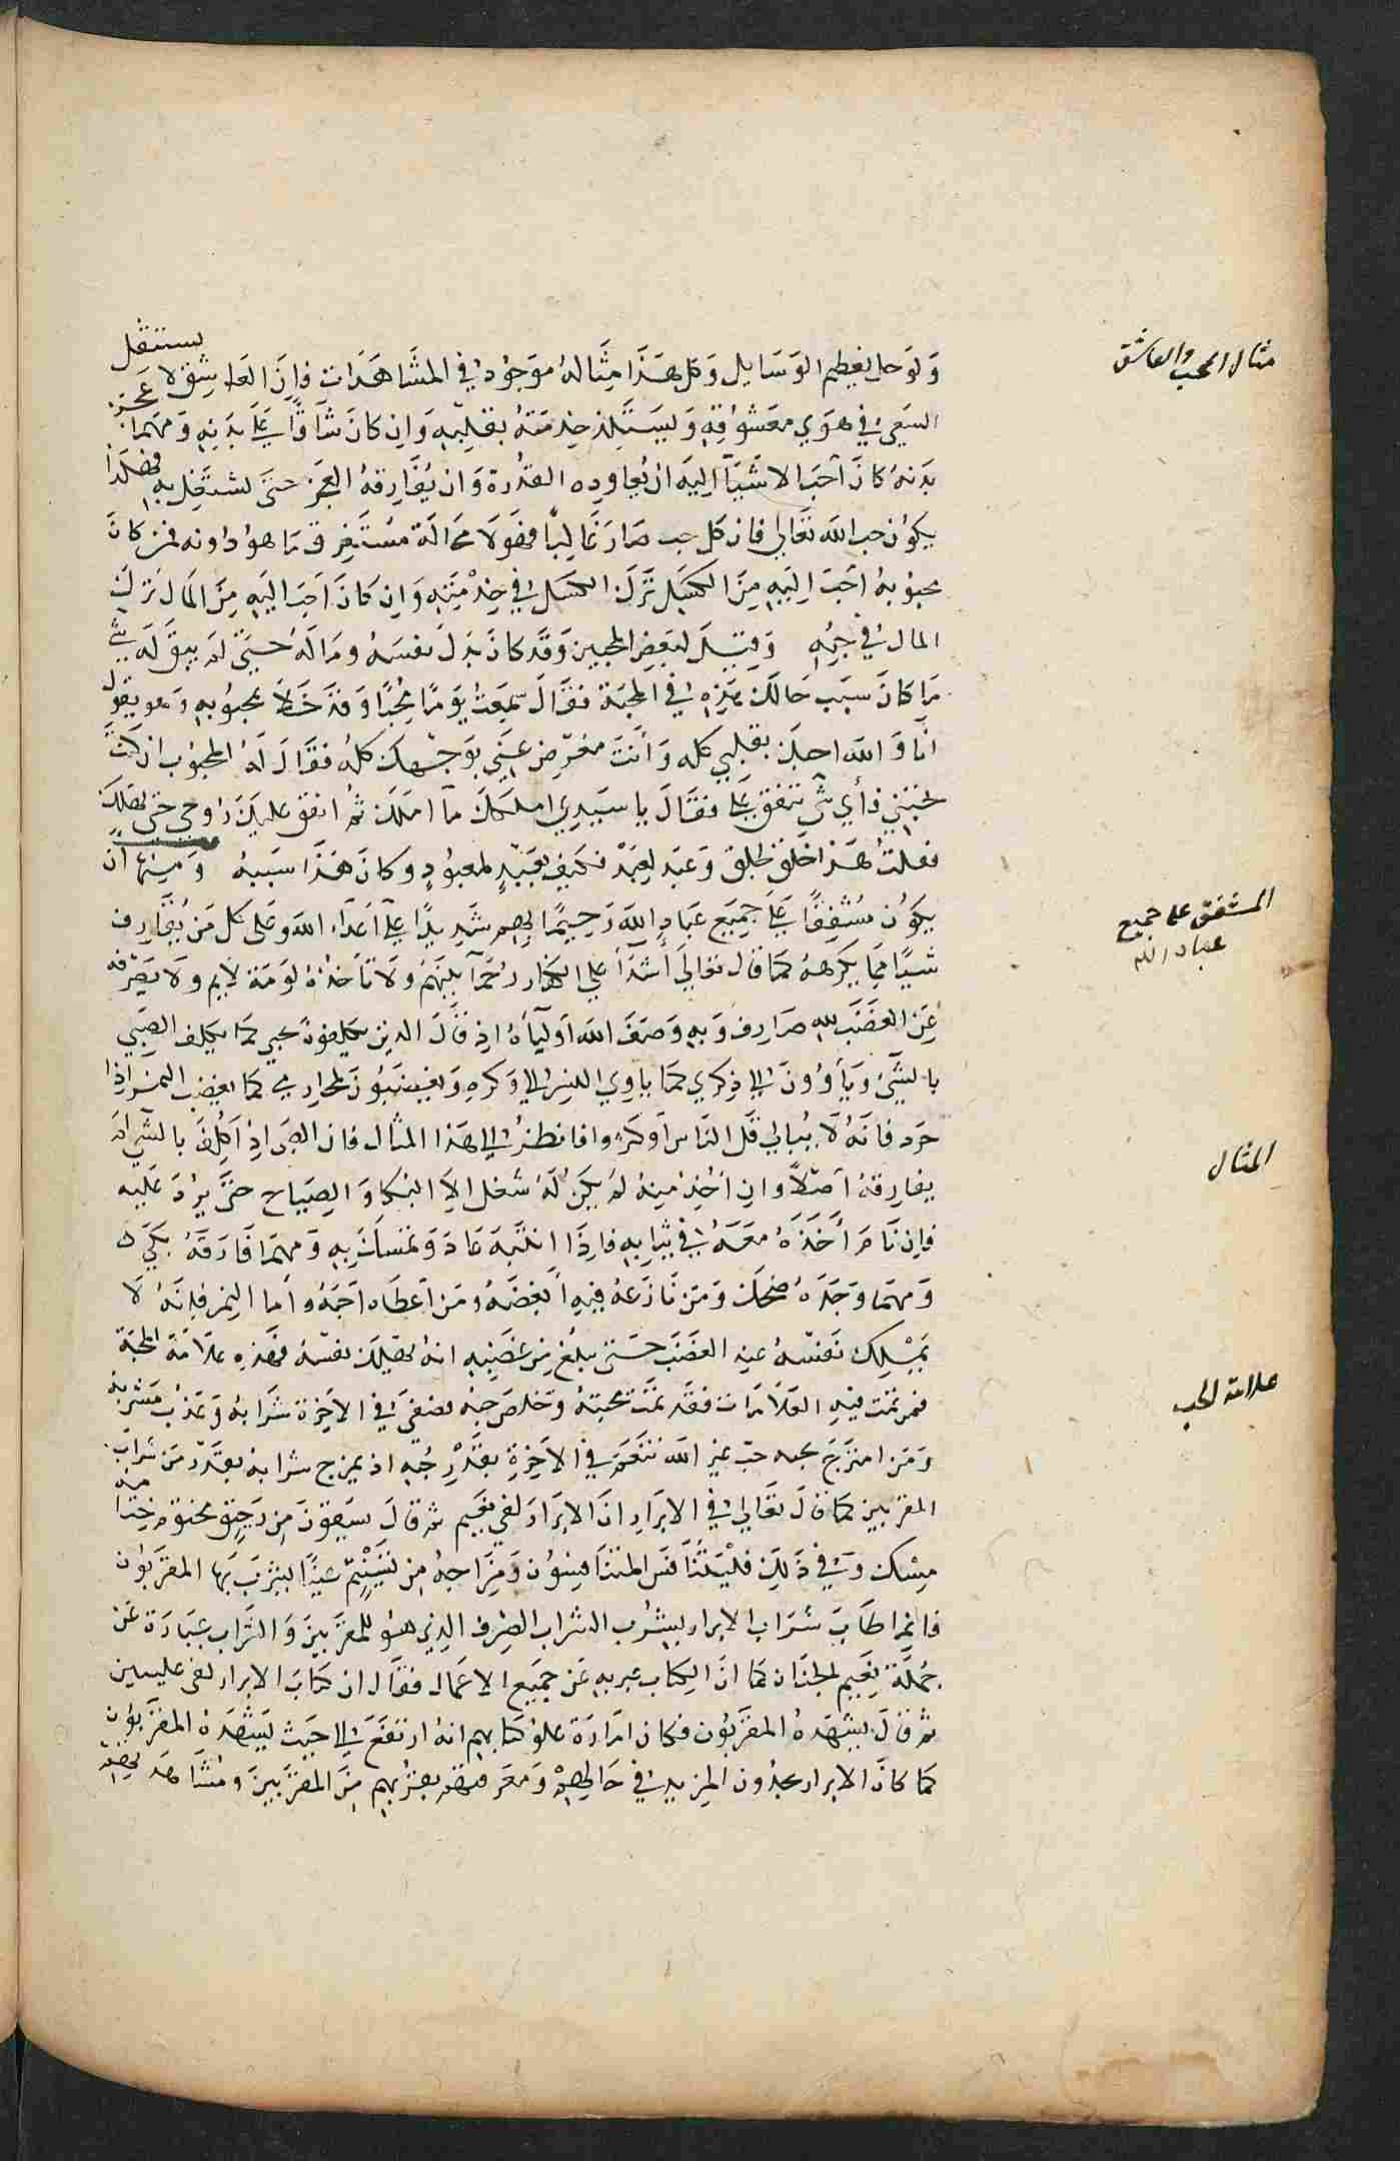 مثال المحب والعاشق
ولو حل بعظيم الوسايل وكل هذا مثاله موجود في المشاهدات فان العاشق لا يستثقل
السعي في هوي معشوقه ويستلذ خدمته بقلبه وان كان شاقا علي بدنه ومهما عجز
بدنه كان احب الاشيا اليه ان يعاوده القدرة وان يفارقه العجز حتى يشتغل به فهكذا
يكون حب الله تعالي فان كل حب صار غالبا فهو لا محالة مستغرق ما هو دونه فمن كان
محبوبه احب اليه من الكسل ترك الكسل في خدمته وان كان احب اليه من المال ترك
المال في حبه وقيل لبعض المحبين وقد كان بذل نفسه وماله حتى لم يبق له شي
ما كان سبب حالك هذه في المحبة فقال سمعت يوما محبا وقد خلا بمحبوبه وهو يقول
انا والله احبك بقلبي كله وانت معرض عني بوجهك كله فقال له المحبوب ان كنت
تحبني فأي شي تنفق علي فقال يا سيدي املكك ما املك ثم انفق عليك روحي حتى تهلك
فقلت هذا خلق لخلق وعبد لعبد فكيف بعبد لمعبود وكان هذا سببه ومنها ان
المشفق على جميع
عباد الله
يكون مشفقا علي جميع عباد الله رحيما بهم شديدا علي اعداء الله وعلى كل من يقارف
شيا مما يكرهه كما قال تعالي أشدآ علي الكفار رحمآ بينهم ولا تأخذه لومة لايم ولا يصرفه
عن الغضب لله صارف وبه وصف الله اوليآه اذ قال الذين يكلفون بحبي كما يكلف الصبي
بالشئ ويأوون الي ذكري كما ياوي النسر الي وكره ويغضبون لمحارمي كما يغضب النمر اذا
حرد فانه لا يبالي قل الناس او كثروا فانظر الي هذا المثال فان الصبي اذا كلف بالشي لم
المثال
يفارقه أصلا وان اخذ منه لم يكن له شغل الا البكا والصياح حتى يرد عليه
فان نام أخذه معه في ثيابه فاذا انتبه عاد وتمسك به ومهما فارقه بكي
ومهما وجده ضحك ومن نازعه فيه أبغضه ومن اعطاه احبه وأما النمر فانه لا
يملك نفسه عند الغضب حتى يبلغ من غضبه انه يهلك نفسه فهذه علامة المحبة
علامت الحب
فمن تمت فيه العلامات فقد تمت محبته وخلص حبه فصفي في الاخرة شرابه وعذب مشربه
ومن امتزج بحبه حب غير الله تنعم في الاخرة بقدر حبه اذ يمزج شرابه بقدر من شراب
المقربين كما قال تعالي في الابرار ان الابرار لفي نعيم ثم قال يسقون من رحيق مختوم ختامه
مسك وفي ذلك فليتنافس المتنافسون ومزاجه من تسنيم عينا يشرب بها المقربون
فانما طاب شراب الابرار بشوب الشراب الصرف الذي هو للمقربين والشراب عبارة عن
جملة نعيم الجنان كما ان الكتاب عبر به عن جميع الاعمال فقال ان كتاب الابرار لفي عليين
ثم قال يشهده المقربون فكان امارة علو كتابهم انه ارتفع الي حيث يشهده المقربون
كما كان الابرار يجدون المزيد في حالهم ومعرفتهم بقربهم من المقربين ومشاهدتهم